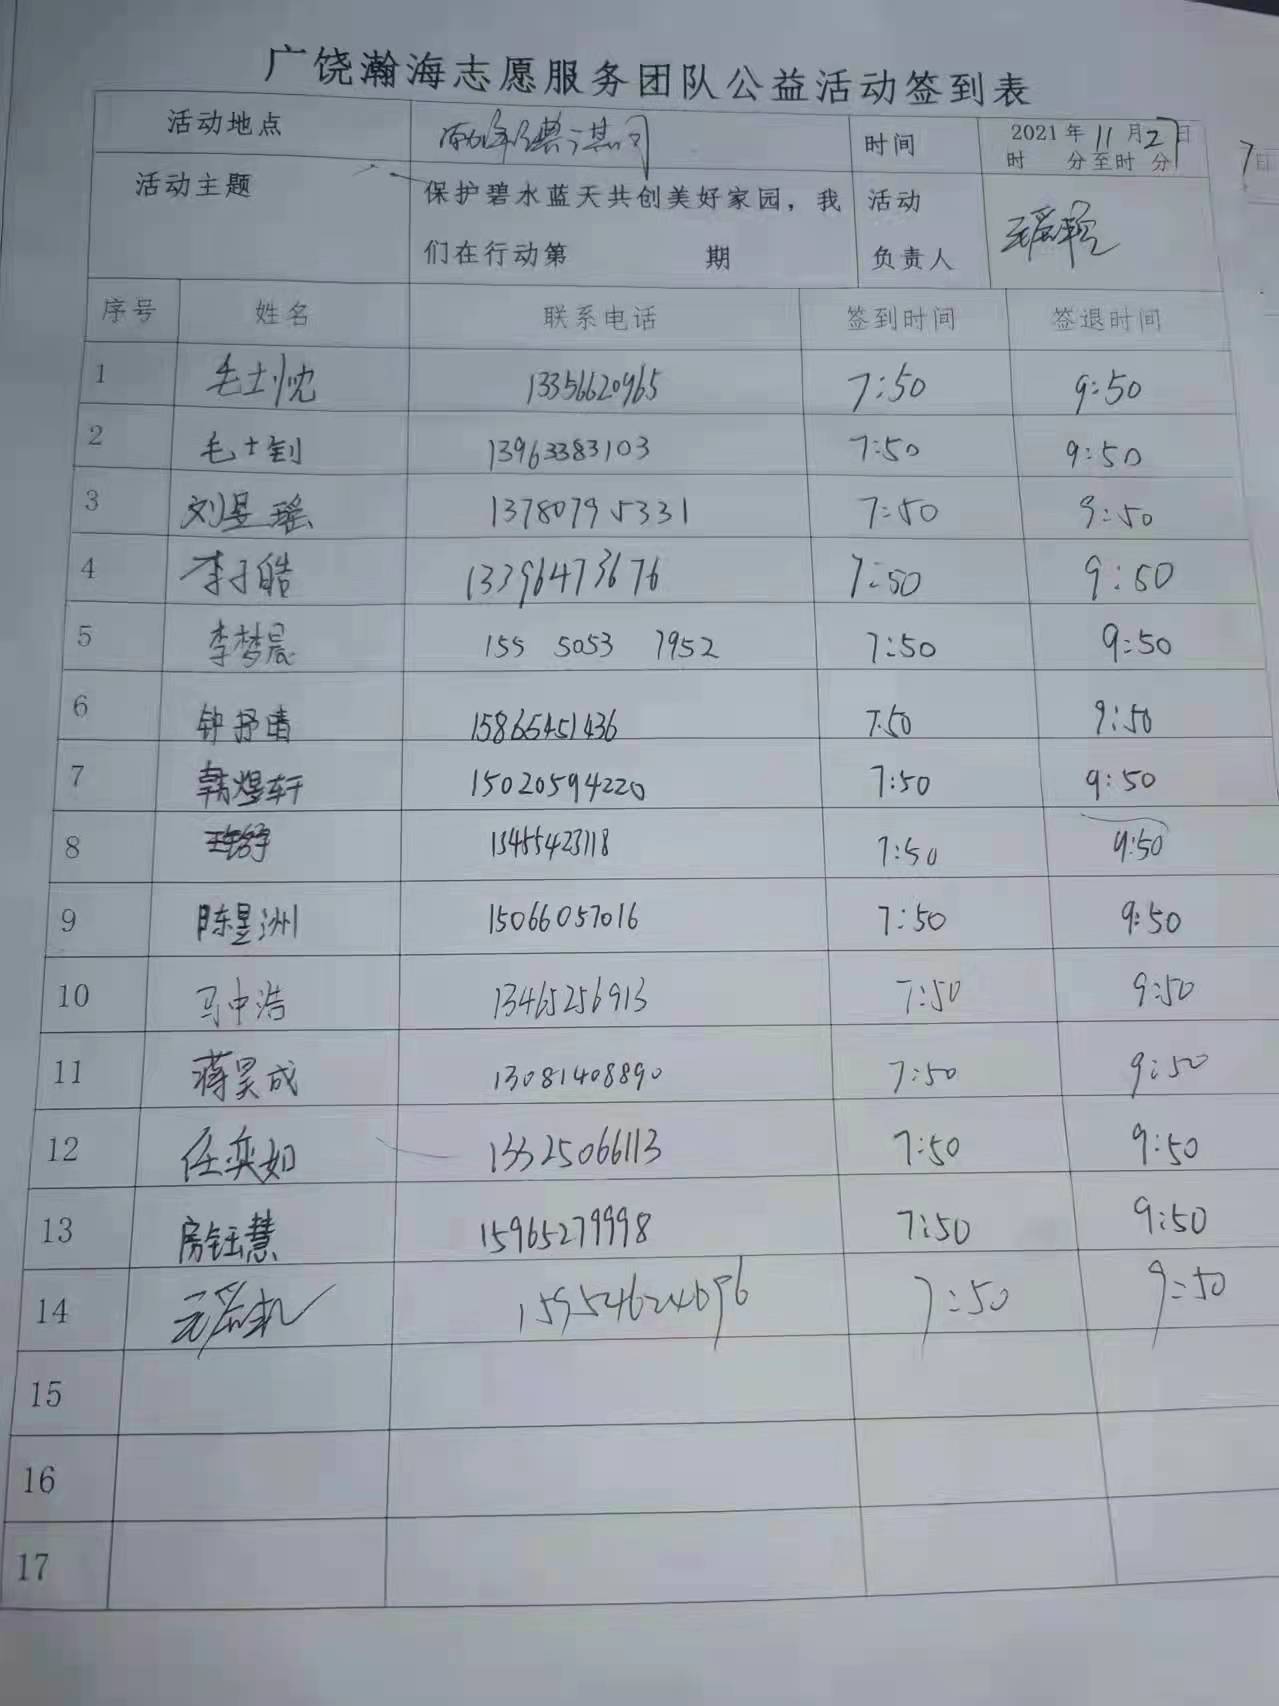 广饶瀚海志愿服务团队公益活动签到表
活动地点 时间 2021年11月27日
时 分至时 分
活动主题 保护碧水蓝天共创美好家园，我 活动
们在行动第 期 负责人
序号 姓名 联系电话 签到时间 签退时间
1 毛士忱 13356620965 7:50 9:50
2 毛士钊 13963383103 7:50 9:50
3 刘昱瑶 13780795331 7:50 9:50
4 李子皓 13396473676 7:50 9:50
5 李梦晨 155 5053 7952 7:50 9:50
6 钟抒晴 15865451436 7:50 9:50
7 韩煜轩 15020594220 7:50 9:50
8 13455423118 7:50 9:50
9 陈昱洲 15066057016 7:50 9:50
10 马中浩 13465256913 7:50 9:50
11 蒋昊成 13081408890 7:50 9:50
12 任奕如 13325066113 7:50 9:50
13 房钰慧 15965279998 7:50 9:50
14 15954624096 7:50 9:50
15
16
17